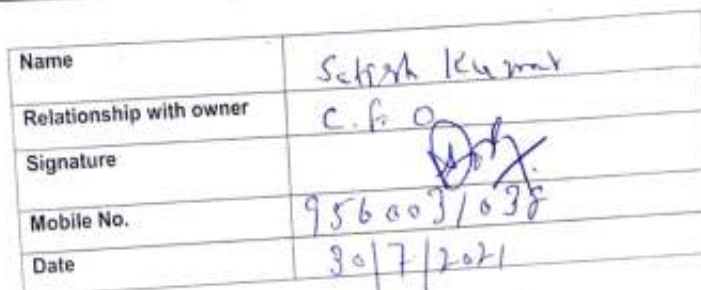 Name Satish Kumar
Relationship with owner C.F.O
Signature
Mobile No. 9560031038
Date 30/7/2021